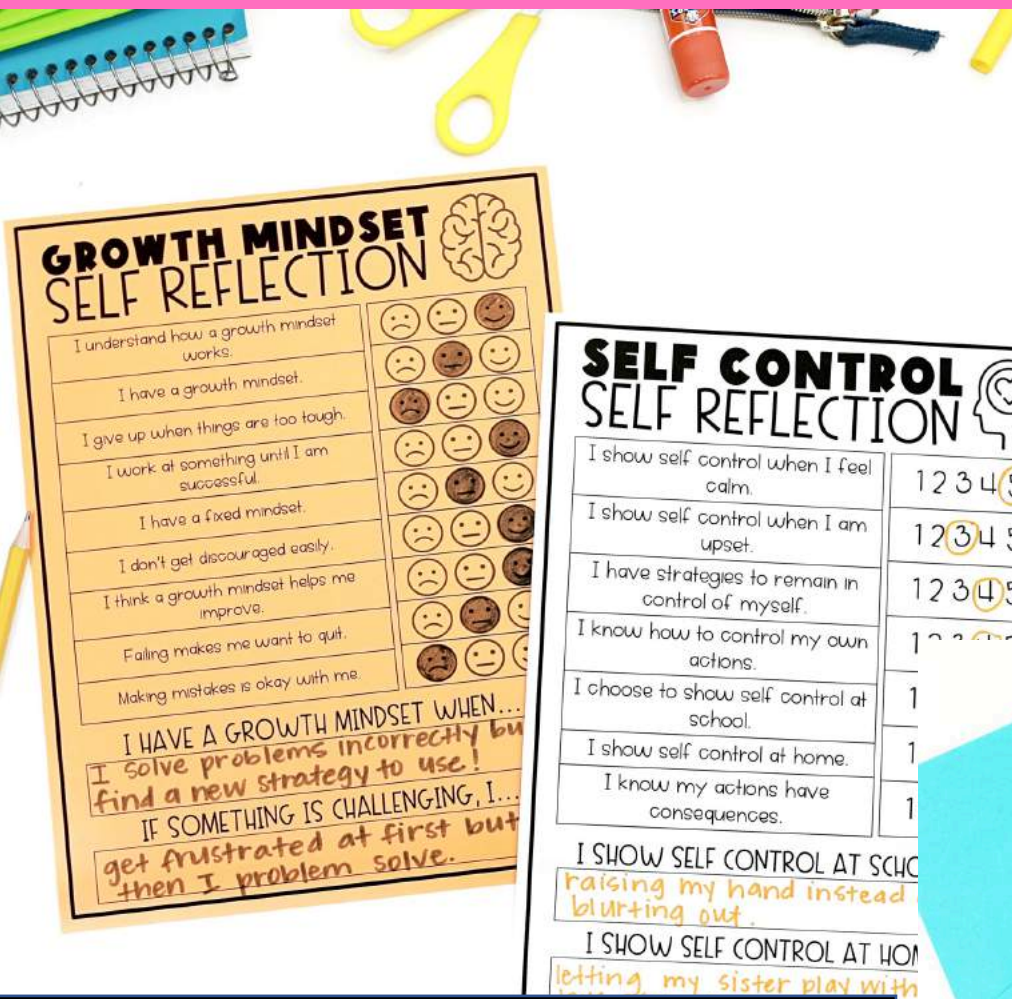 GROWTH MINDSET
SELF REFLECTION
I understand how a growth mindset
works.
I have a growth mindset.
I give up when things are too tough.
I work at something until I am
successful.
I have a fixed mindset.
I don't get discouraged easily.
I think a growth mindset helps me
improve.
Failing makes me want to quit.
Making mistakes is okay with me.
I HAVE A GROWTH MINDSET WHEN...
I solve problems incorrectly bu
find a new strategy to use!
IF SOMETHING IS CHALLENGING, I...
get frustrated at first but
then I problem solve.
SELF CONTROL
SELF REFLECTION
I show self control when I feel
calm.
1 2 3 4 5
I show self control when I am
upset.
1 2 3 4 5
I have strategies to remain in
control of myself.
1 2 3 4 5
I know how to control my own
actions.
I choose to show self control at
school.
1
I show self control at home.
1
I know my actions have
consequences.
1
I SHOW SELF CONTROL AT SCHO
raising my hand instead
blurting out.
I SHOW SELF CONTROL AT HOM
letting my sister play with